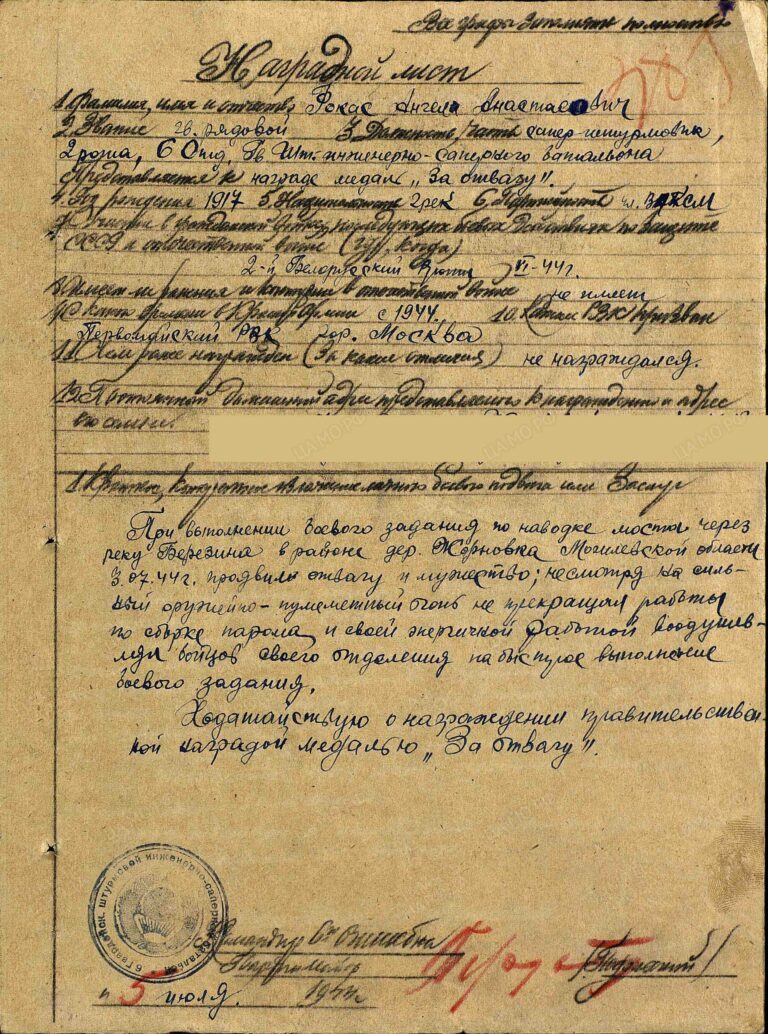 Все графы заполнять полностью
Наградной лист
1. Фамилия, имя и отчество Рокас Ангела Анастасович
2. Звание гв. рядовой 3. Должность, часть сапер-штурмовик,
2 рота, 6 Отд. Гв. Шт. инженерно-саперного батальона
Представляется к награде медаль „За отвагу".
4. Год рождения 1917 5. Национальность грек 6. Партийность чл. ВЛКСМ
7. Участие в гражданской войне, последующих боевых действиях по защите
СССР и отечественной войне (где, когда)
2-й Белорусский Фронт VI-44г.
8. Имеет ли ранения и контузии в отечественной войне не имеет
9. С какого времени в Красной Армии с 1944. 10. Каким РВК призван
Первомайский РВК гор. Москва
11. Чем ранее награжден (За какие отличия) не награждался.
12. Постоянный домашний адрес представляемого к награждению и адрес
его семьи.
1. Краткое, конкретное изложение личного боевого подвига или Заслуг
При выполнении боевого задания по наводке моста через
реку Березина в районе дер. Жорновка Могилевской области
3.07.44г. проявила отвагу и мужество; несмотря на силь-
ный оружейно-пулеметный огонь не прекращал работы
по сборке парома и своей энергичной работой воодушев-
лял бойцов своего отделения на быстрое выполнение
боевого задания.
Ходатайствую о награждении правительствен-
ной наградой медалью „За отвагу".
6 Гвардейск. штурмовой инженерно-саперный батальон
Командир
Гвардии Майор
„5" июля 1944г.